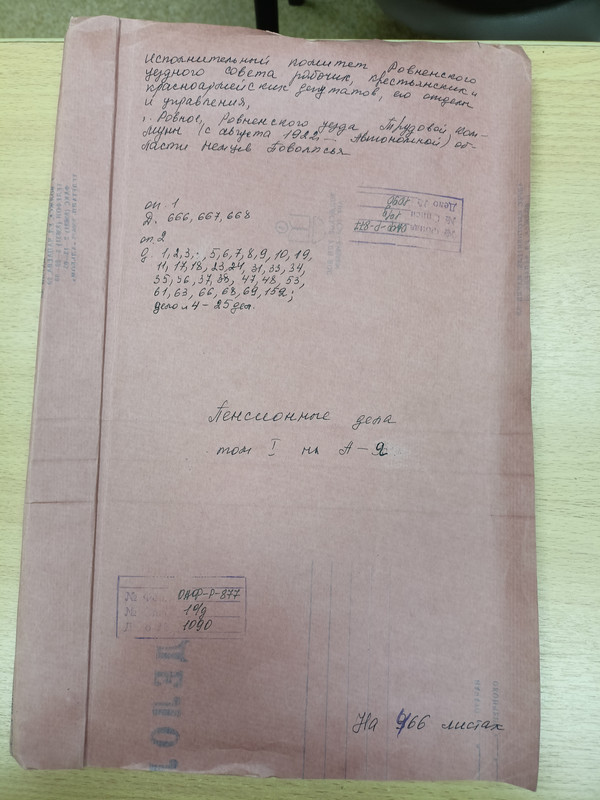 Исполнительный комитет Ровненского
уездного совета рабочих, крестьянских и
красноармейских депутатов, его отделы
и управления,
г. Ровное, Ровненского уезда Трудовой ком-
муны (с августа 1922 – Автономной) об-
ласти Немцев Поволжья
оп. 1
Д. 666, 667, 668
оп. 2
д. 1, 2, 3, 5, 6, 7, 8, 9, 10, 19,
11, 17, 18, 23, 24, 31, 33, 34,
35, 36, 37, 38, 47, 48, 53,
61, 63, 66, 68, 69, 152;
дело л 4 – 25 дел.
ОАФ-Р-877
1б/д
1090
Пенсионные дела
том I на А – Я
ОАФ-Р-877
1б/д
1090
ДЕЛО
На 966 листах